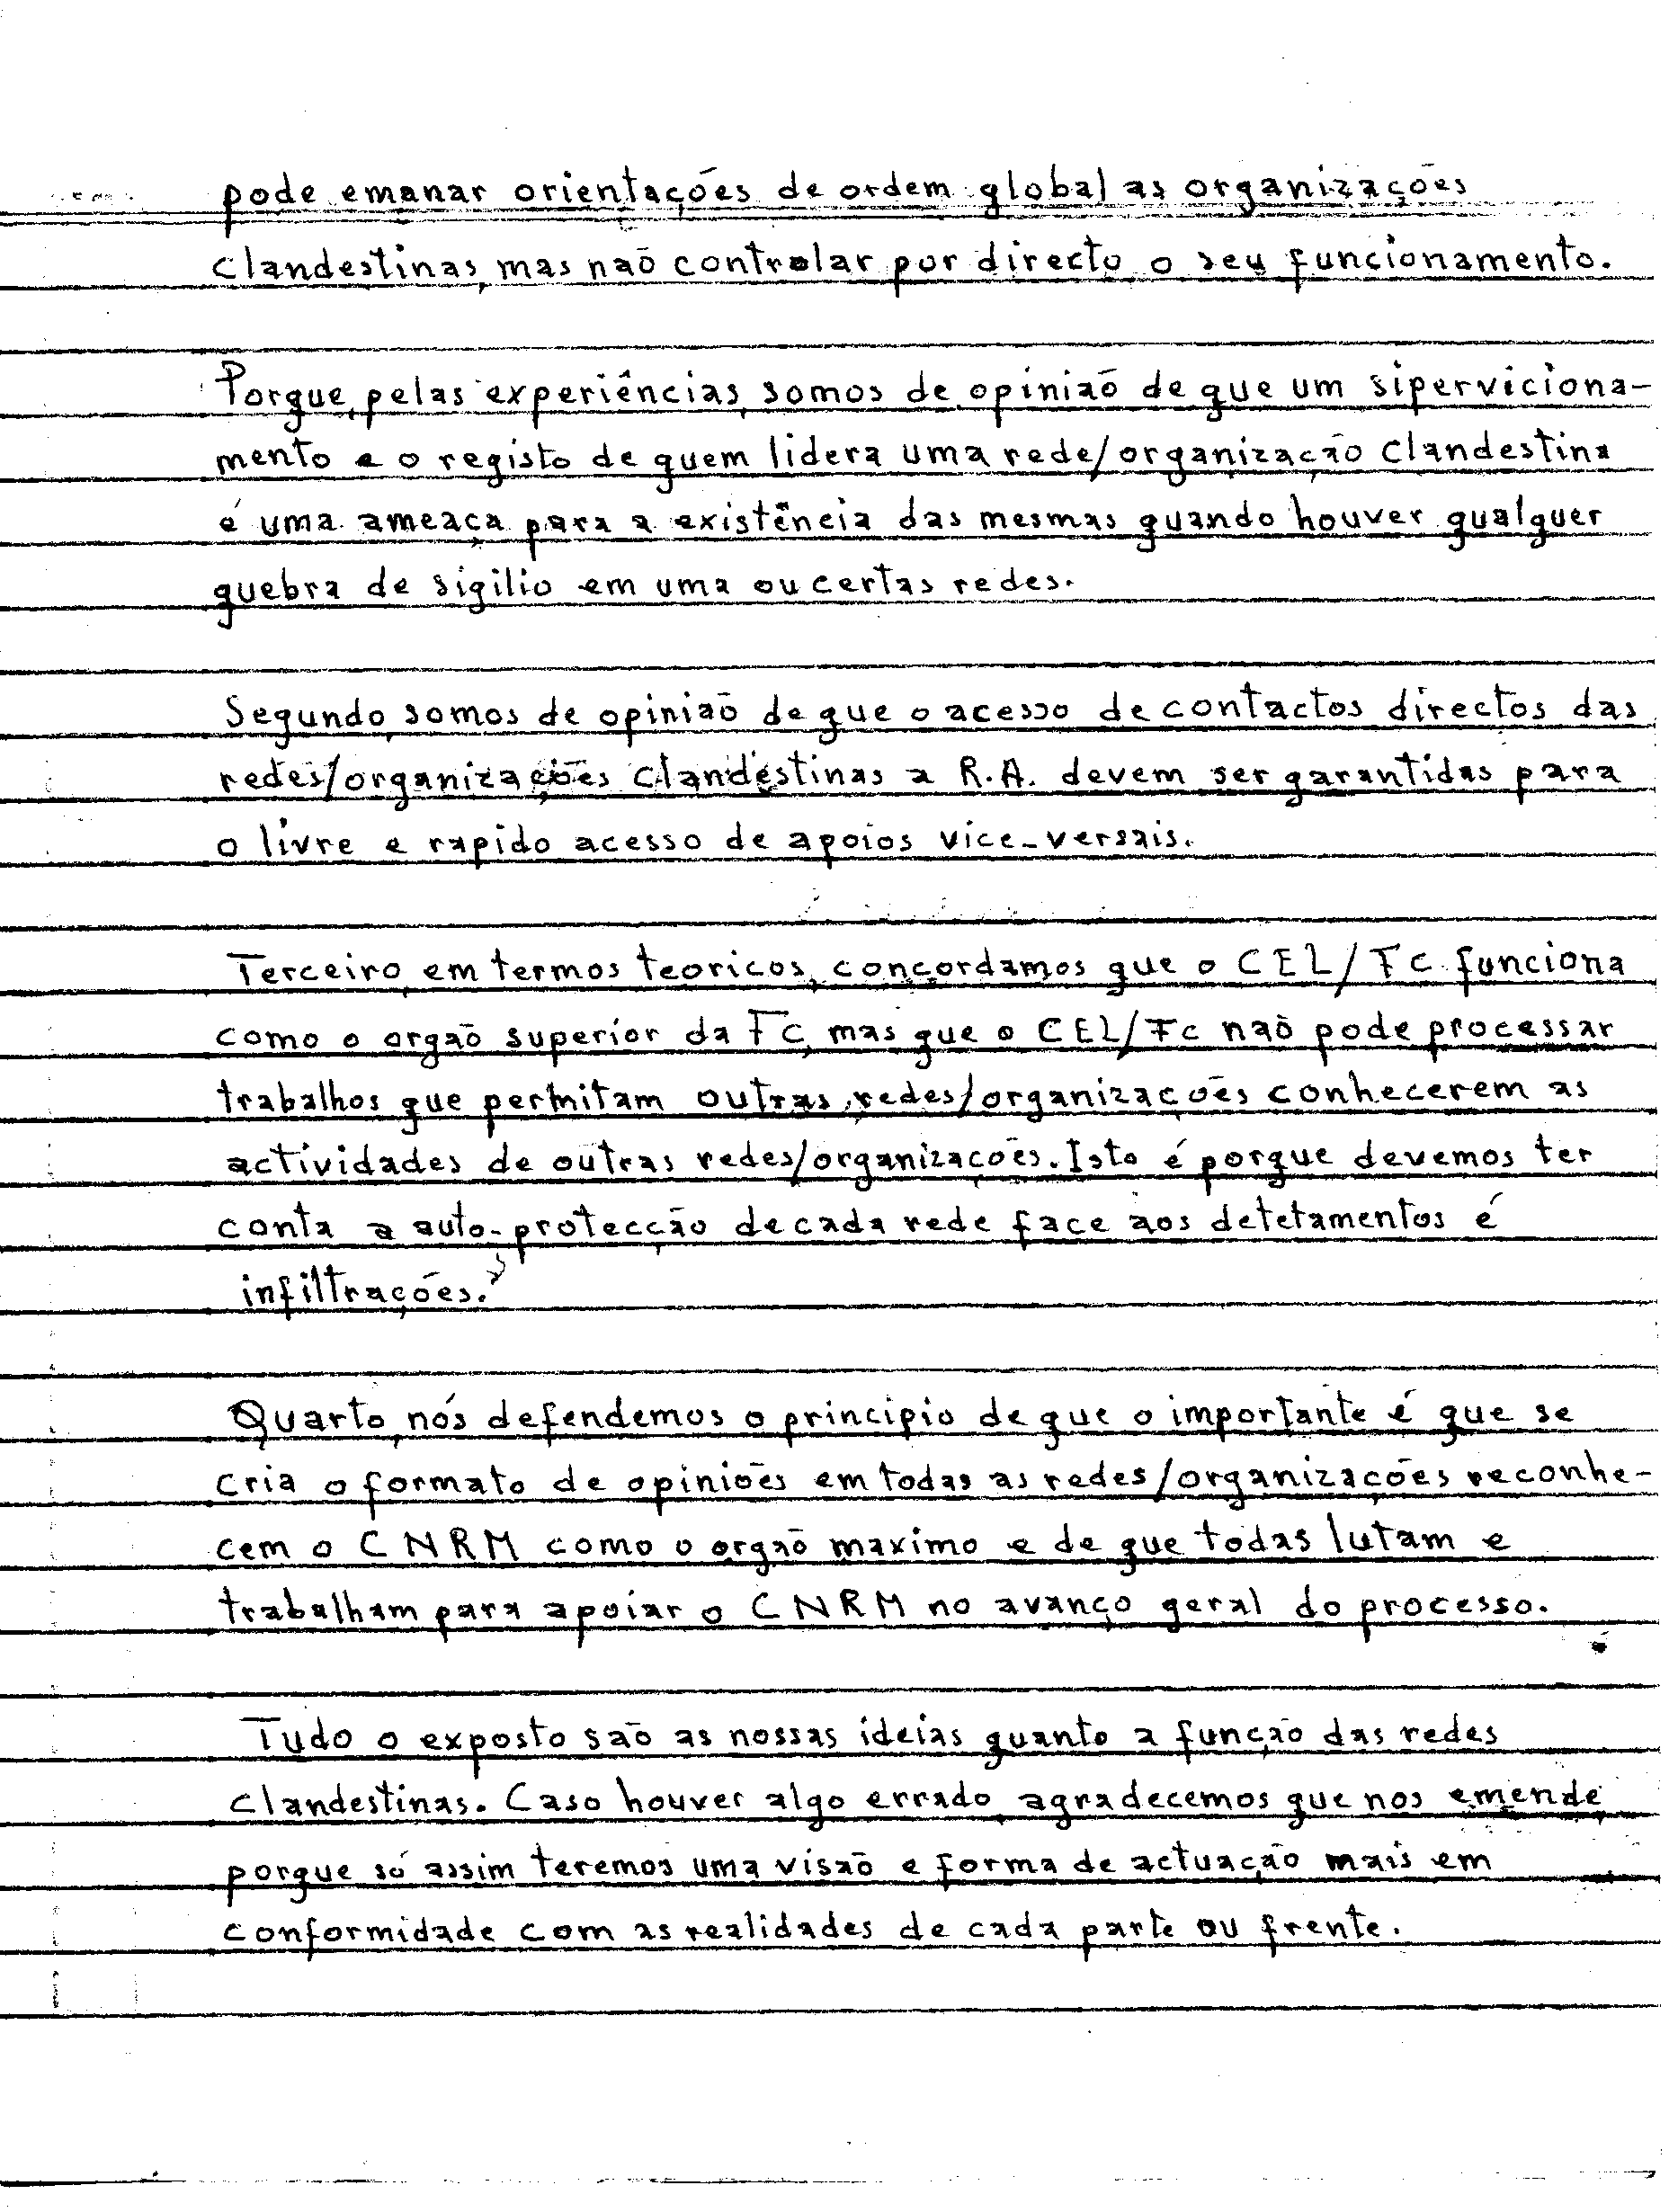 pode emanar orientações de ordem global as organizações
clandestinas, mas não controlar por directo o seu funcionamento.
Porque, pelas experiências, somos de opinião de que um siperviciona-
mento e o registo de quem lidera uma rede/organização clandestina
é uma ameaça para a existência das mesmas quando houver qualquer
quebra de sigilio em uma ou certas redes.
Segundo, somos de opinião de que o acesso de contactos directos das
redes/organizações clandestinas a R.A. devem ser garantidas para
o livre e rapido acesso de apoios vice-versais.
Terceiro, em termos teoricos, concordamos que o CEL/FC funciona
como o orgão superior da FC, mas que o CEL/FC não pode processar
trabalhos que permitam outras redes/organizações conhecerem as
actividades de outras redes/organizações. Isto é porque devemos ter
conta a auto-protecção de cada rede face aos detetamentos é
infiltrações.
Quarto, nós defendemos o principio de que o importante é que se
cria o formato de opiniões em todas as redes/organizações reconhe-
cem o CNRM como o orgão maximo e de que todas lutam e
trabalham para apoiar o CNRM no avanço geral do processo.
Tudo o exposto são as nossas ideias quanto a função das redes
clandestinas. Caso houver algo errado, agradecemos que nos emende,
porque só assim teremos uma visão e forma de actuação mais em
conformidade com as realidades de cada parte ou frente.